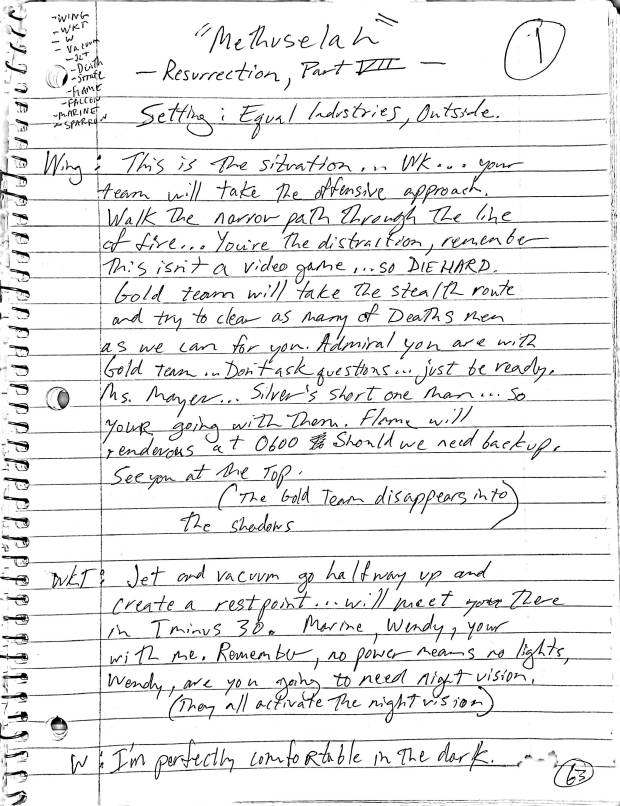 -WING
-WKT
- W
- Vacuum
- Jet
- Death
- State
- FLAME
- FALCON
-MARINE
- SPARROW
"Methuselah"
1
— Resurrection, Part VII —
Setting: Equal Industries, Outside.
Wing: This is the situation... WK... your
team will take the offensive approach.
Walk the narrow path through the line
of fire... You're the distraction, remember
this isn't a video game... so DIE HARD.
Gold team will take the stealth route
and try to clear as many of Deaths men
as we can for you. Admiral you are with
Gold team... Don't ask questions... just be ready.
Ms. Mayer... Silver's short one man... so
youR going with them. Flame will
rendevous at 0600 should we need backup.
See you at the Top.
(The Gold Team disappears into)
the shadows
WKT: Jet and vacuum go halfway up and
create a restpoint... will meet you there
in T minus 30. Marine, Wendy, your
with me. Remember, no power means no lights,
Wendy, are you going to need night vision.
(They all activate the night vision)
W: I'm perfectly comfortable in the dark.
63